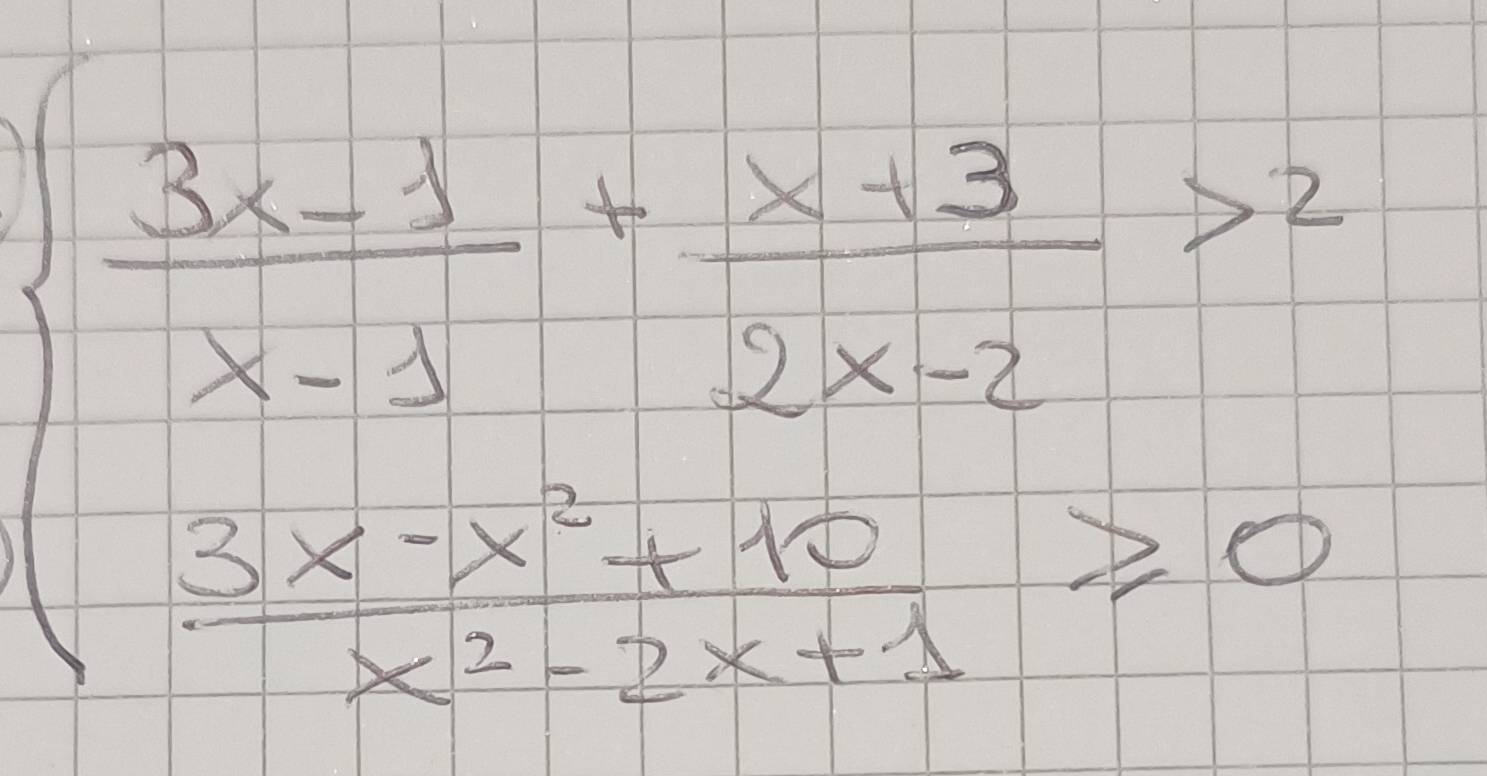 3x-1/x-1 + x+3/2x-2 >2
3x-x²+10/x²-2x+1 ⩾ 0